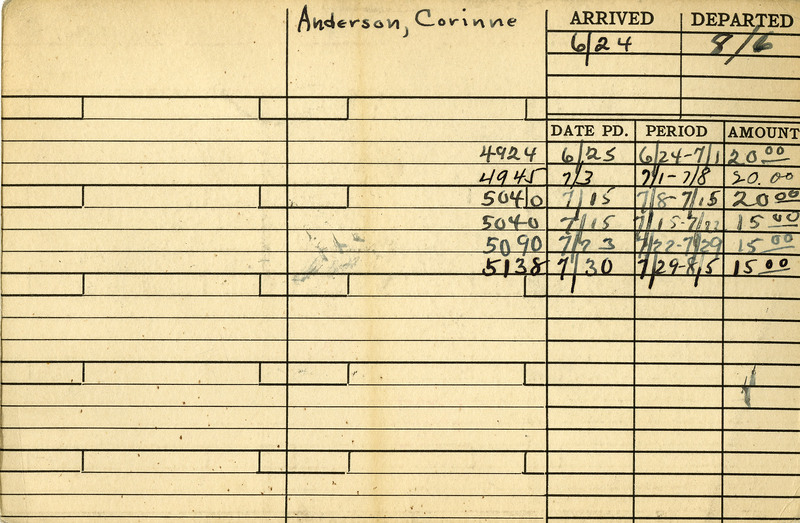 Anderson, Corinne
ARRIVED DEPARTED
6/24 8/6
DATE PD. PERIOD AMOUNT
4924 6/25 6/24-7/1 20 00
4945 7/3 7/1-7/8 20.00
5040 7/15 7/8-7/15 20 00
5040 7/15 7/15-7/22 15 00
5090 7/23 7/22-7/29 15 00
5138 7/30 7/29-8/5 15 00